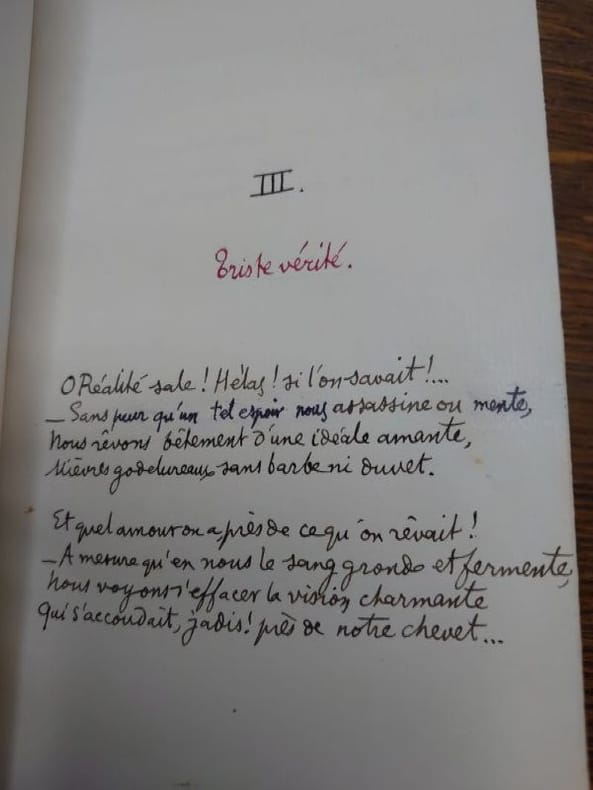 III.
Triste vérité.
O Réalité sale ! Hélas ! si l'on savait !...
— Sans peur qu'un tel espoir nous assassine ou mente,
Nous rêvons bêtement d'une idéale amante,
Mièvres godelureaux sans barbe ni duvet.
Et quel amour on a, près de ce qu'on rêvait !
— A mesure qu'en nous le sang gronde et fermente,
Nous voyons s'effacer la vision charmante
Qui s'accoudait, jadis ! près de notre chevet...